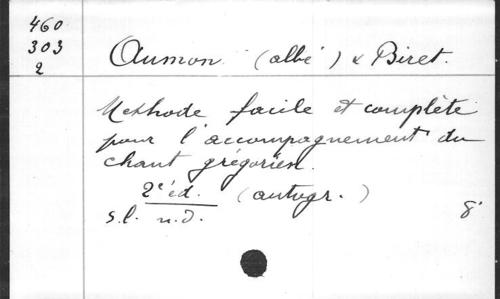 460
303
2
Aumon (abbé) & Biret.
Methode facile et complète
pour l'accompagnement du
chant grégorien.
2e éd. (autogr.)
s.l. n.d. 8°